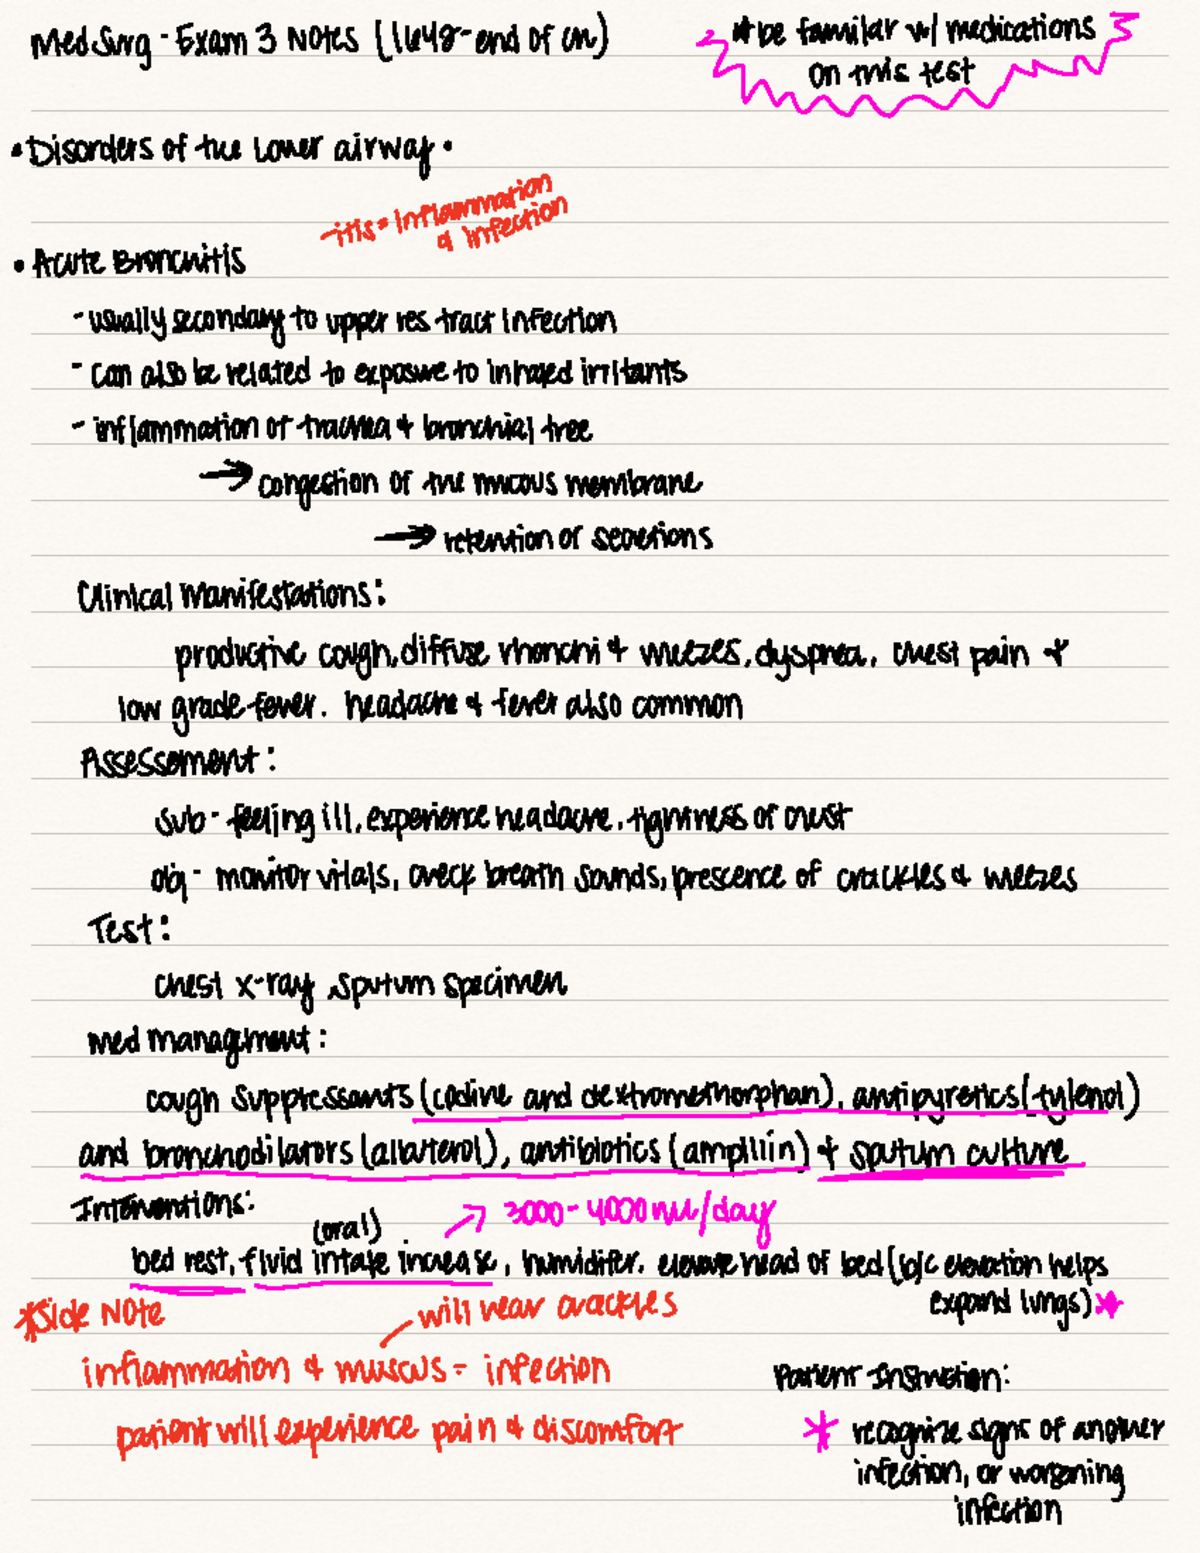 Med Surg - Exam 3 Notes (1648-end of ch)
* be familar w/ medications
on this test
• Disorders of the lower airway •
-itis = Inflammation
& infection
• Acute Bronchitis
- usually secondary to upper res tract infection
- can also be related to exposure to inhaled irritants
- inflammation of trachea + bronchial tree
→ congestion of the mucous membrane
→ retention of secretions
Clinical Manifestations:
productive cough, diffuse rhonchi + wheezes, dyspnea, chest pain +
low grade fever. headache & fever also common
Assessement:
sub - feeling ill, experience headache, tightness of chest
obj - monitor vitals, check breath sounds, prescence of crackles & wheezes
Test:
chest x-ray, sputum specimen
med management:
cough suppressants (codine and dextromethorphan), antipyretics (tylenol)
and bronchodilators (albuterol), antibiotics (ampillin) + sputum culture
Interventions:
→ 3000 - 4000 ml/day
(oral)
bed rest, fluid intake increase, humidifer, elevate head of bed (b/c elevation helps
expand lungs) *
*Side Note
will hear crackles
inflammation & muscus = infection
patient will experience pain & discomfort
Patient Instruction:
* recognize signs of another
infection, or worsening
infection